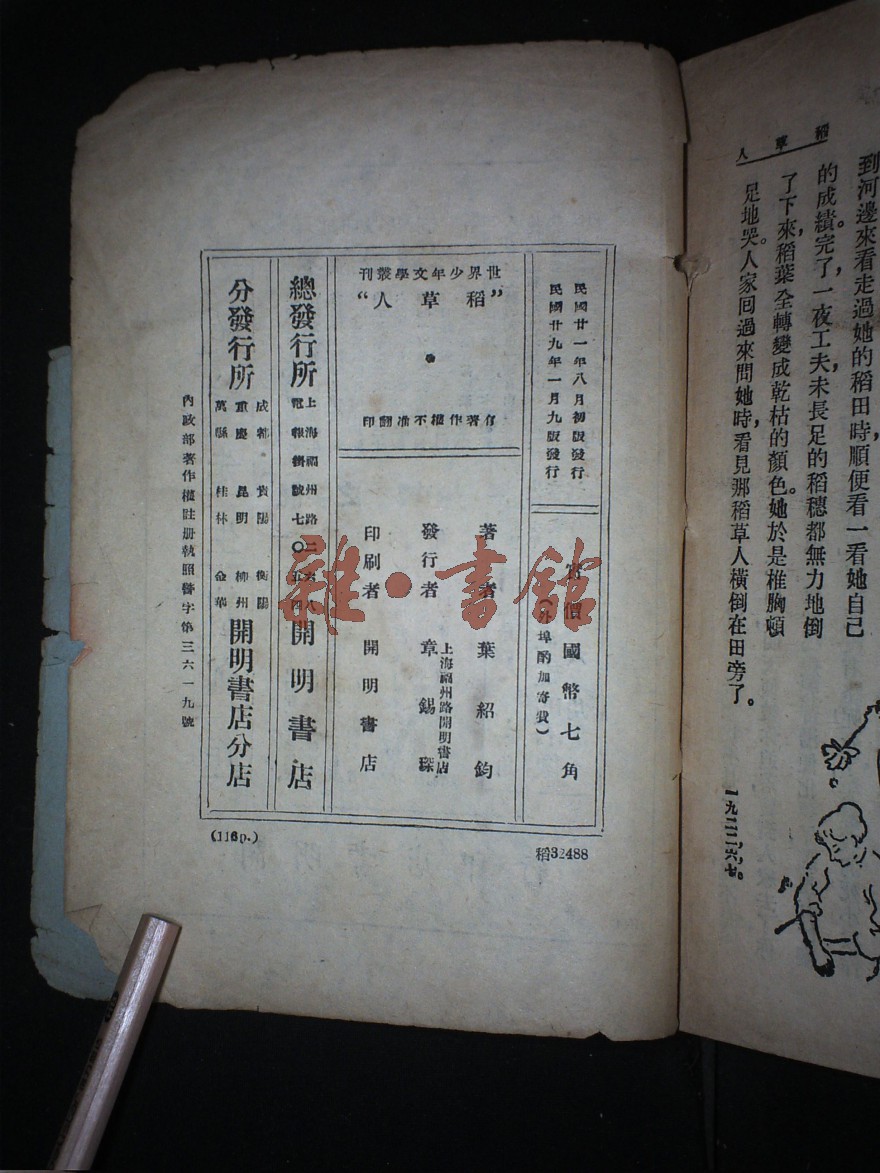 稻草人
到河邊來看走過她的稻田時順便看一看她自己
的成績。完了，一夜工夫未長足的稻穗都無力地倒
了下來，稻葉全轉變成乾枯的顏色。她於是椎胸頓
足地哭。人家回過來問她時，看見那稻草人橫倒在田旁了。
一九二二，六，七。
民國廿一年八月初版發行
民國廿九年一月九版發行
實價國幣七角
(外埠酌加寄費)
世界少年文學叢刊
“稻草人”
有著作權不准翻印
著者 葉紹鈞
發行者 章錫琛
上海福州路開明書店
印刷者 開明書店
總發行所
上海福州路二六八
電報掛號七〇五四
開明書店
分發行所
成都 貴陽 衡陽
重慶 昆明 柳州
萬縣 桂林 金華
開明書店分店
內政部著作權註册執照警字第三六一九號
(116p.)
稻32488
雜·書館